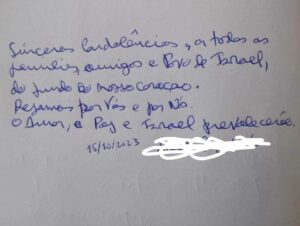 Sinceras Condolências, a todos as
famílias, amigos e Povo de Israel,
do fundo do nosso coração.
Rezamos por Vós e por Nós.
O Amor, a Paz e Israel prevalecerão.
15/10/2023